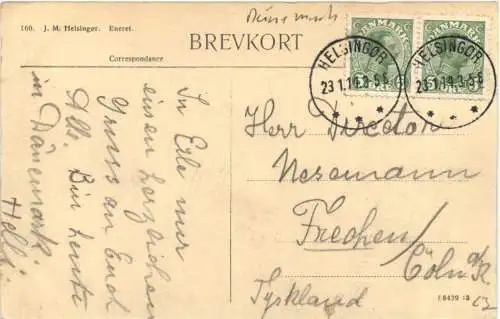 160. J. M. Helsingør. Eneret.
Dänemark
BREVKORT
Correspondance
DANMARK
DANMARK
HELSINGØR
23 1.14.3-5 E
HELSINGØR
23 1.14.3-5 E
In Eile nur
einen herzlichen
Gruss an Euch
Alle. Bin heute
in Dänemark.
Helli
Herr Director
Nesemann
Frechen/
Cöln a/R
Tyskland